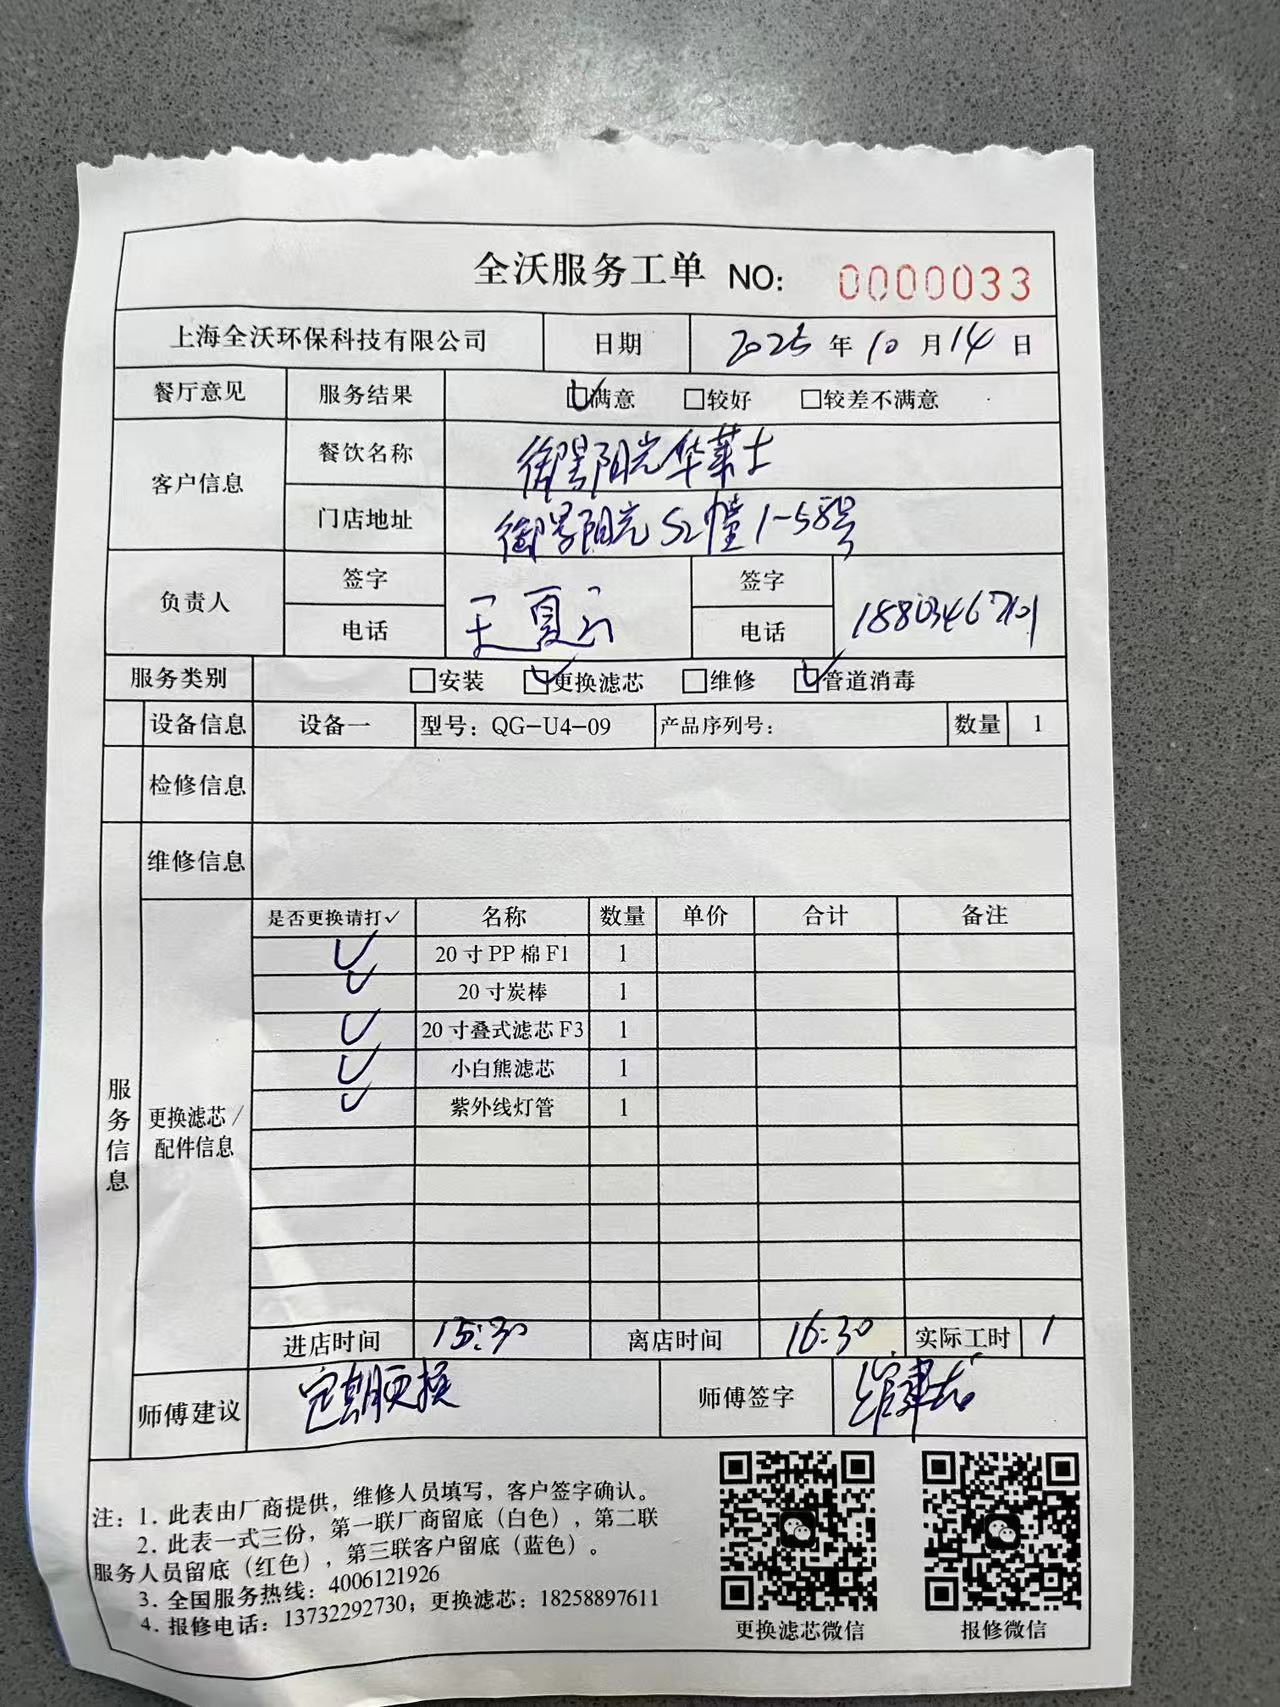 全沃服务工单 NO: 0000033
上海全沃环保科技有限公司 日期 2025 年 10 月 14 日
餐厅意见 服务结果 ☑满意 □较好 □较差不满意
客户信息 餐饮名称 御景阳光华莱士
门店地址 御景阳光S2幢1-58号
负责人 签字 王夏云 签字
电话 电话
服务类别 □安装 ☑更换滤芯 □维修 ☑管道消毒
设备信息 设备一 型号: QG-U4-09 产品序列号: 数量 1
检修信息
维修信息
服务信息
更换滤芯/
配件信息
是否更换请打✓ 名称 数量 单价 合计 备注
✓ 20寸PP棉F1 1
✓ 20寸炭棒 1
✓ 20寸叠式滤芯F3 1
✓ 小白熊滤芯 1
✓ 紫外线灯管 1
进店时间 15:30 离店时间 16:30 实际工时 1
师傅建议 定期更换 师傅签字
注: 1. 此表由厂商提供，维修人员填写，客户签字确认。
2. 此表一式三份，第一联厂商留底（白色），第二联
服务人员留底（红色），第三联客户留底（蓝色）。
3. 全国服务热线: 4006121926
4. 报修电话: 13732292730; 更换滤芯: 18258897611
更换滤芯微信 报修微信